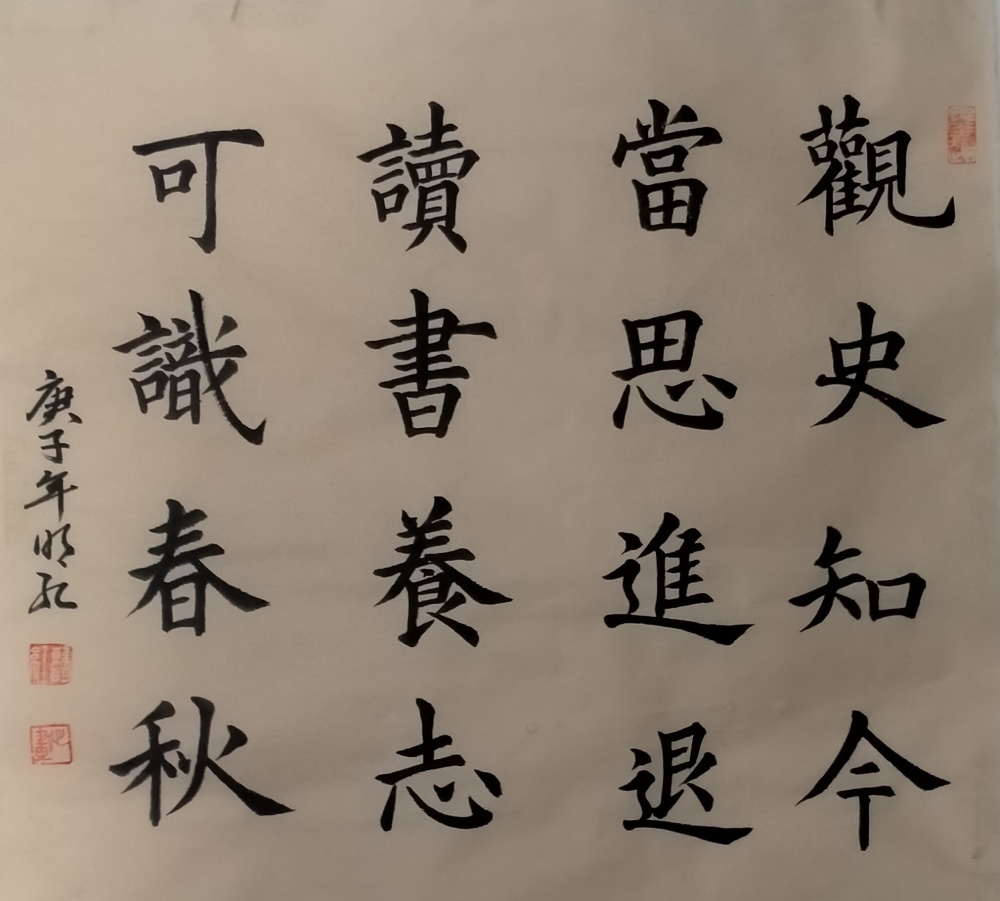 觀史知今
當思進退
讀書養志
可識春秋
庚子年明紅